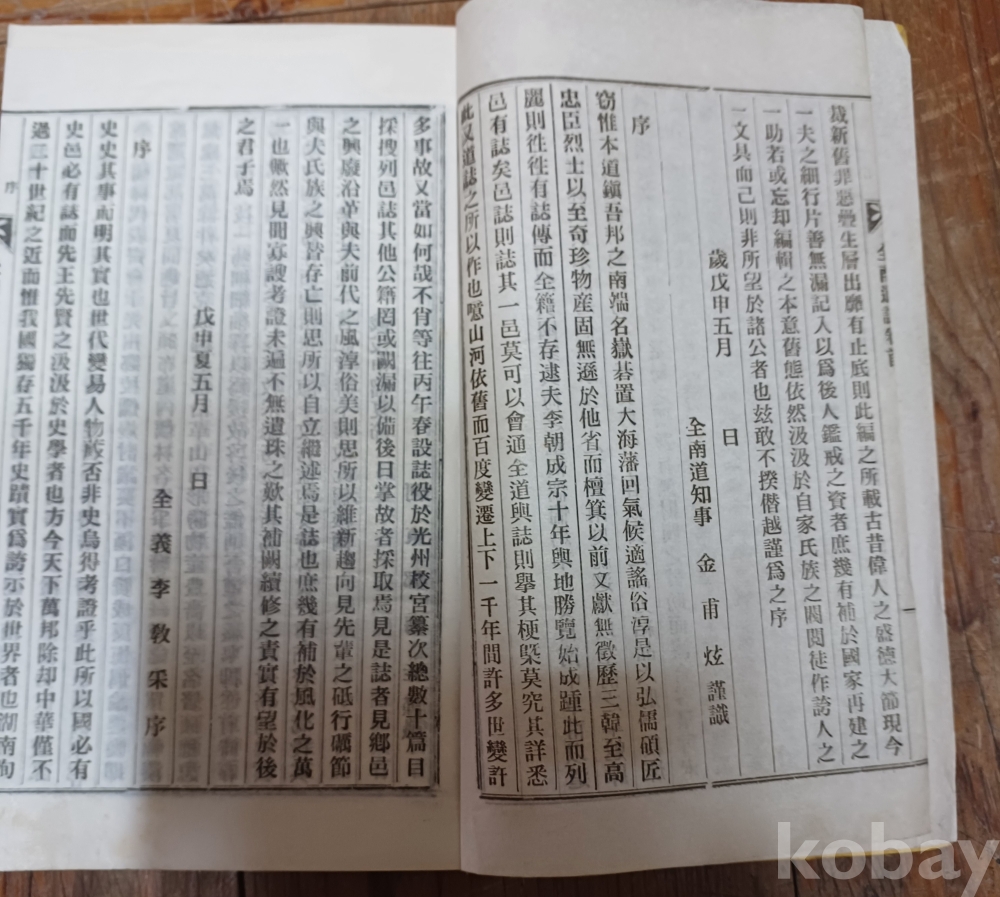 歲新舊罪惡疊生層出靡有止底則此編之所載古昔偉人之盛德大節現今
一夫之細行片善無漏記入以爲後人鑑戒之資者庶幾有補於國家再建之
一助若或忘却編輯之本意舊態依然汲汲於自家氏族之閥閱徒作誇人之
一文具而已則非所望於諸公者也玆敢不揆僭越謹爲之序
歲戊申五月 日
全南道知事 金甫炫謹識
序
窃惟本道鎭吾邦之南端名嶽碁置大海藩回氣候適謠俗淳是以弘儒碩匠
忠臣烈士以至奇珍物産固無遜於他省而檀箕以前文獻無徵歷三韓至高
麗則徃徃有誌傳而全籍不存逮夫李朝成宗十年輿地勝覽始成踵此而列
邑有誌矣邑誌則誌其一邑莫可以會通全道輿誌則擧其梗槩莫究其詳悉
此又道誌之所以作也噫山河依舊而百度變遷上下一千年間許多世變許
多事故又當如何哉不肖等往丙午春設誌役於光州校宮纂次總數十篇目
採搜列邑誌其他公籍罔或闕漏以備後日掌故者採取焉見是誌者見鄕邑
之興廢沿革與夫前代之風淳俗美則思所以維新趨向見先輩之砥行礪節
與夫氏族之興替存亡則思所以自立繼述焉是誌也庶幾有補於風化之萬
一也歟然見聞寡謏考證未遍不無遺珠之歎其浦闕續修之責實有望於後
之君子焉
戊申夏五月 日
全義李敎采序
序
史史其事而明其實也世代變易人物臧否非史烏得考證乎此所以國必有
史邑必有誌而先王先賢之汲汲於史學者也方今天下萬邦除却中華僅不
過二十世紀之近而惟我國獨存五千年史蹟實爲誇示於世界者也湖南徇
序
kobay